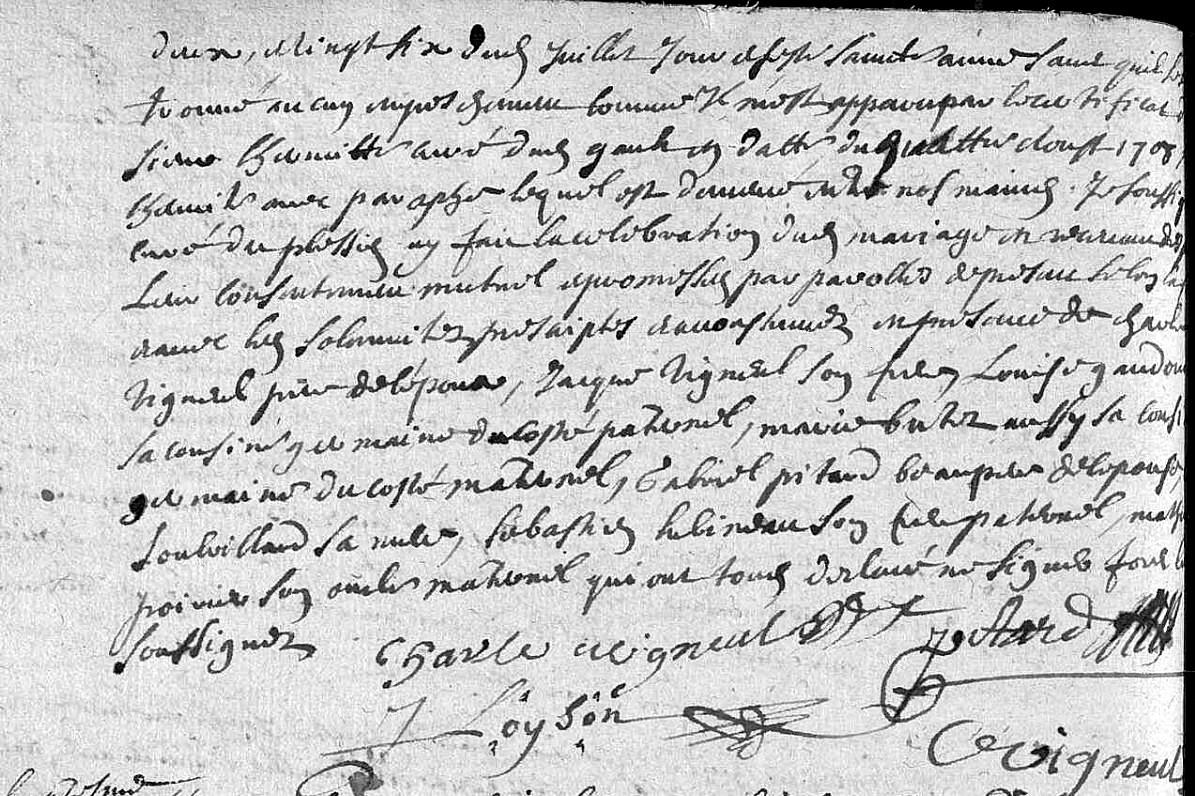 deux, et vingt six dud juillet jour et feste saincte anne sans quil se
trouvé aucun empeschemen comme il m'est apparu par le certificat
sieur Thomitte curé dud gault en datte du quattre aoust 1708
avec paraphe lequel est demeuré entre nos mains. Je soussig
curé du plessis ay fait la celebration dud mariage en recevant
leur consentement mutuel et promesses par parolles de present selon la
et avec les solemnitez prescriptes et accoustumez en presence de charle
Vigneul pere de lépoux, Jacque Vigneul son frere, Louise gaudon
sa cousine germaine du costé paternel, marie butet aussy sa cousi
germaine du costé maternel, Gabriel pitard beaupere de lepouse,
sa mere, sebastien hubineau son frere paternel, math
poirier son oncle maternel qui ont tous declaré ne signer fors le
soussignez
Charle Vigneul pitard
J Loyson
C Vigneul